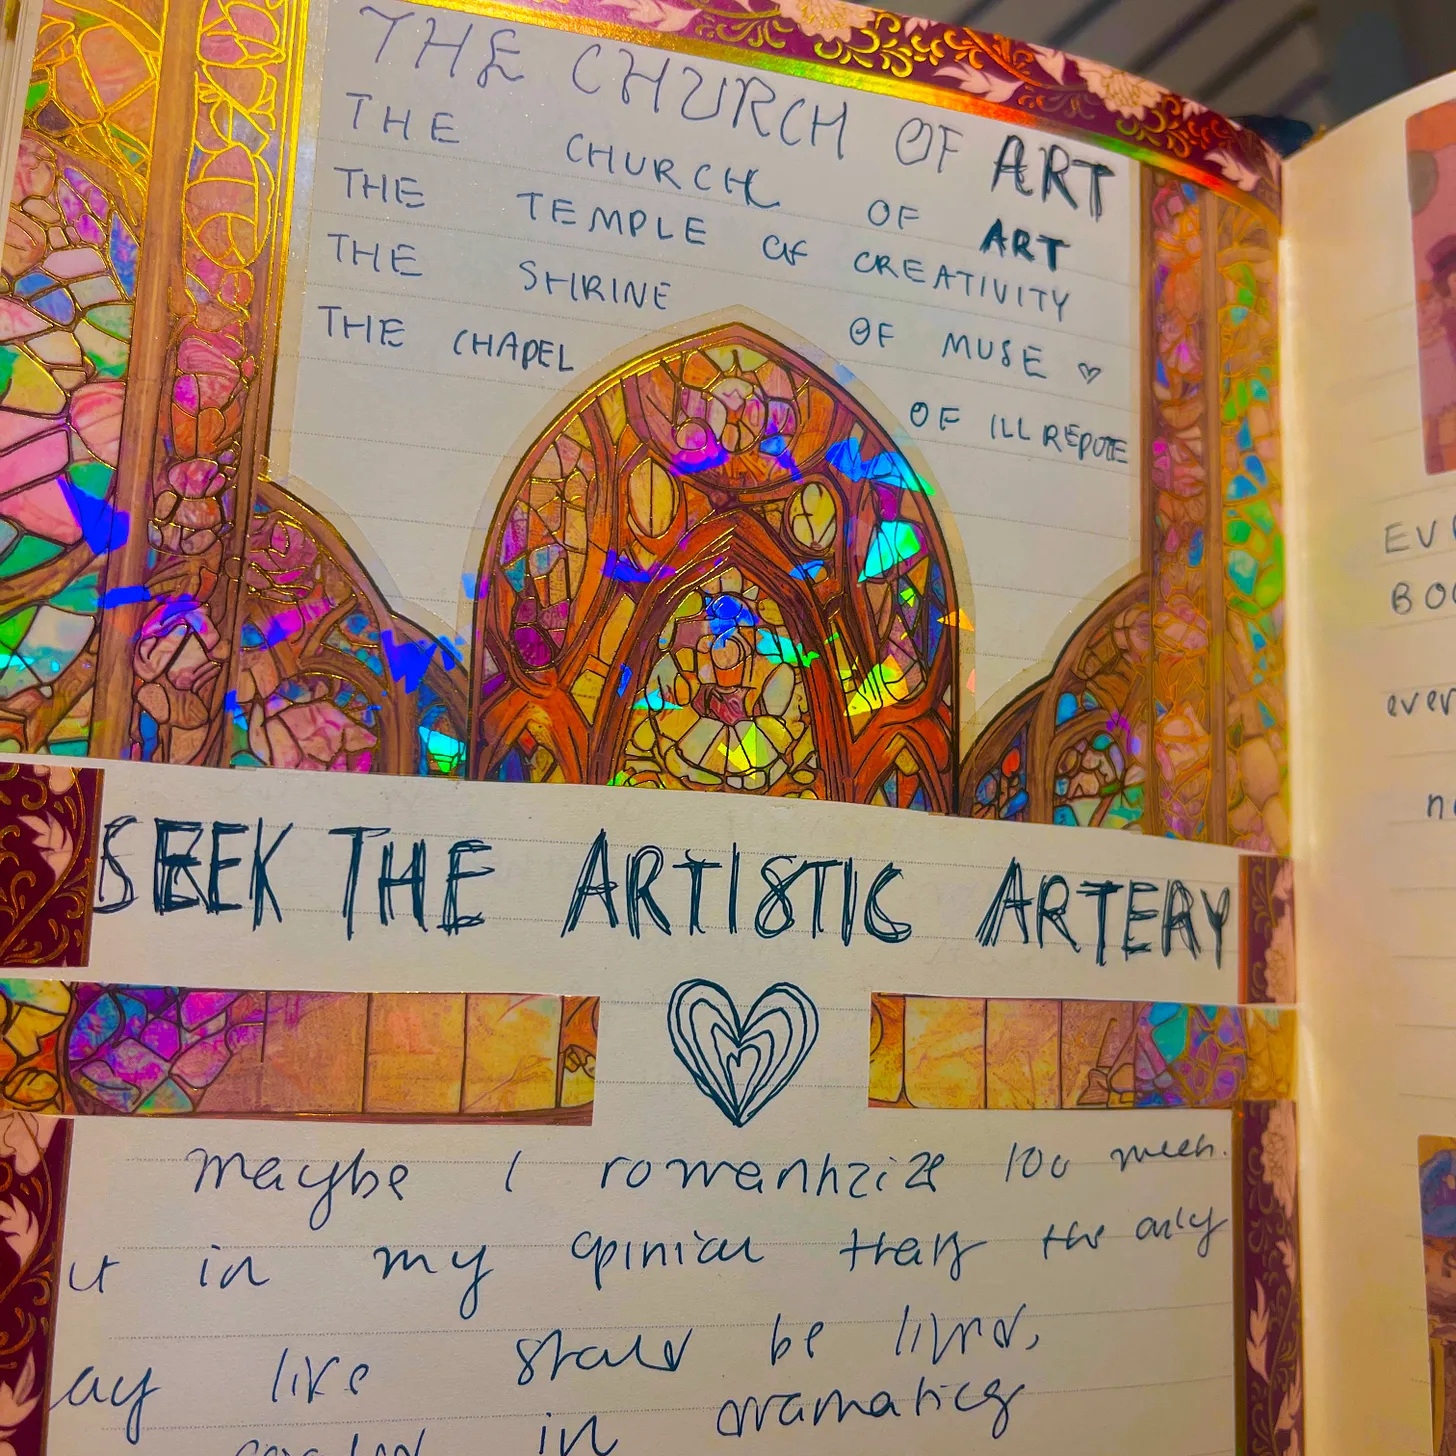 THE CHURCH OF ART
THE CHURCH OF ART
THE TEMPLE OF CREATIVITY
THE SHRINE OF MUSE ♡
THE CHAPEL OF ILL REPUTE
SEEK THE ARTISTIC ARTERY
maybe I romanticize too much.
it in my opinion that the only
ay life should be lived,
in dramatics
BO
ever